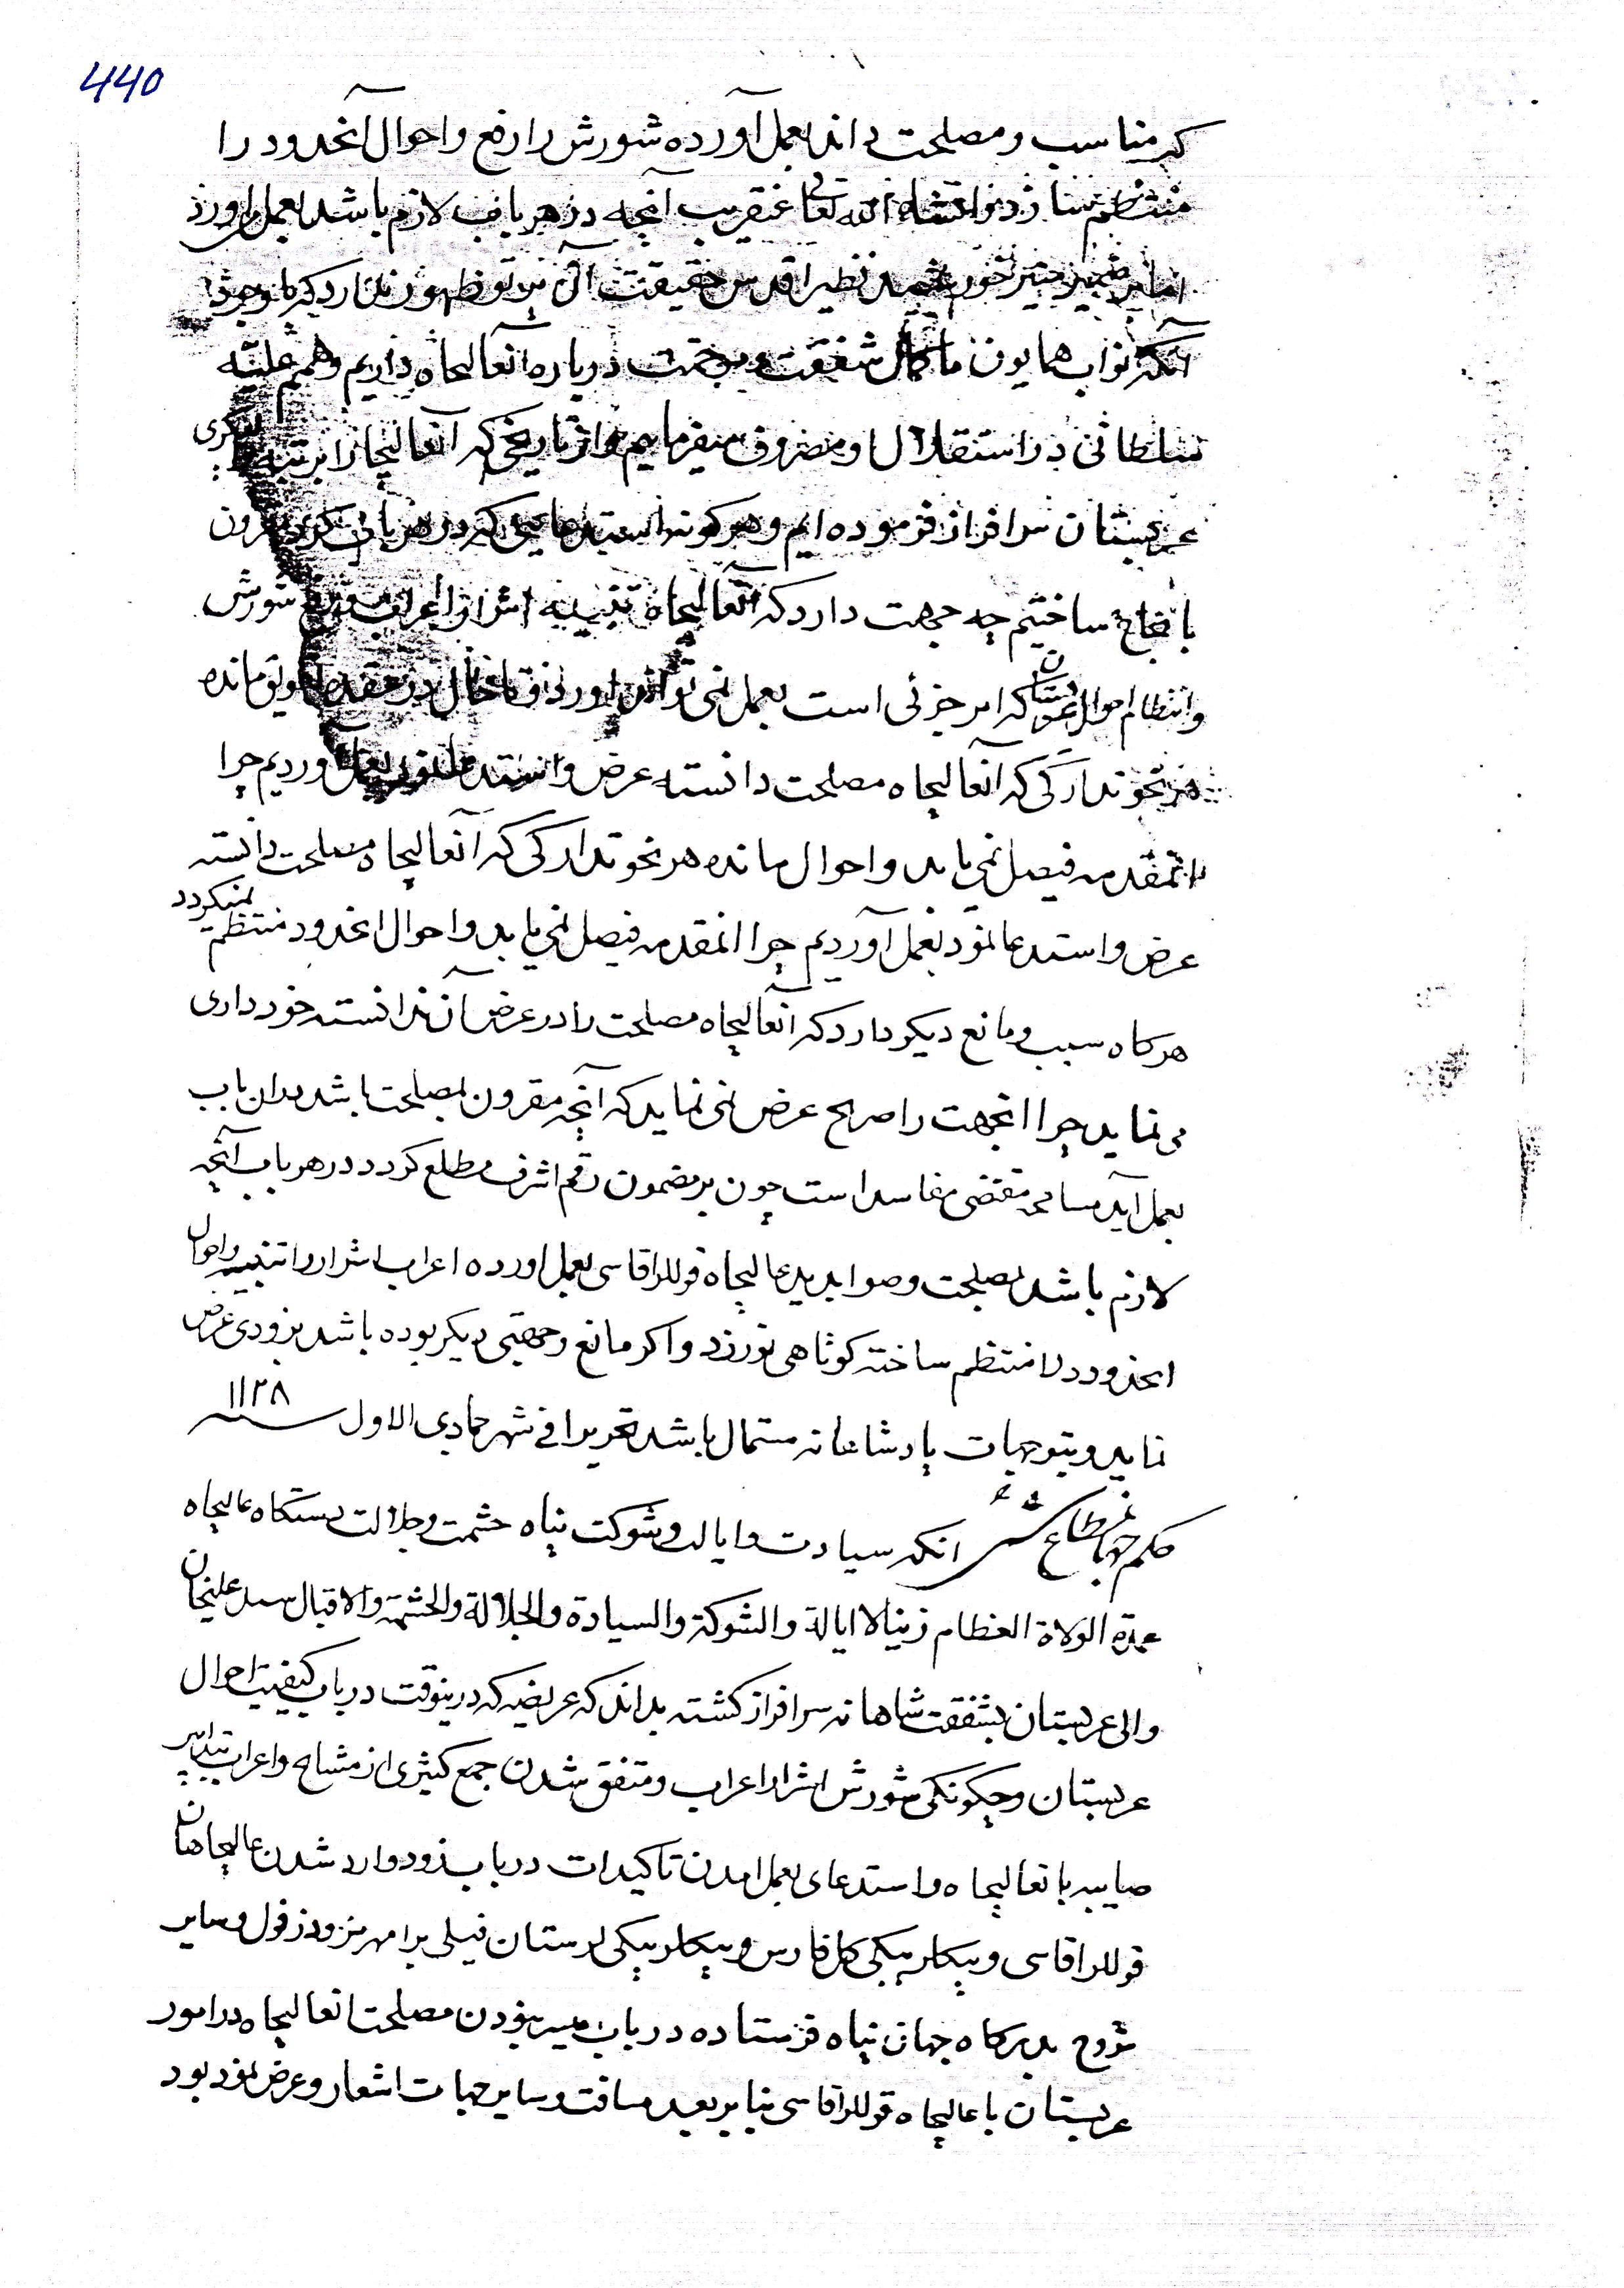 440
که مناسب و مصلحت داند بعمل آورده شورش را رفع و احوال آنحدود را
منتظم سازد و انشاء الله تعالی عنقریب آنچه در هر باب لازم باشد بعمل می آورد
اما بر ضمیر اقدس حقیقت آن پرتو ظهور ندارد که باوجود
آنکه نواب همایون ما کمال شفقت و مرحمت درباره آنعالیجاه داریم و همم علیه
سلطانی در استقلال او مصروف میفرمایم و از تاریخی که آنعالیجاه را برتبه
عربستان سرافراز فرموده ایم و هر کونه استدعایی که در هر باب کرده مقرون
بانجاح ساختیم چه جهت دارد که آنعالیجاه تنبیه اشرار اعراب و رفع شورش
و انتظام احوال عربستان که امر جزئی است بعمل نمی تواند آورد و تا حال در عقده تعویق مانده
هر نحو تدارکی که آنعالیجاه مصلحت دانسته عرض و استدعا نمود بعمل آوردیم چرا
انمقدمه فیصل نمی یابد و احوال مانده هر نحو تدارکی که آنعالیجاه مصلحت دانسته
عرض و استدعا نمود بعمل آوردیم چرا انمقدمه فیصل نمی یابد و احوال انحدود منتظم نمیکردد
هرکاه سبب و مانع دیکر دارد که آنعالیجاه مصلحت را در عرض آن ندانسته خودداری
می نماید چرا انجهت را صریح عرض نمی نماید که آنچه مقرون بمصلحت باشد در ان باب
بعمل آید مسامحه مقتضی مفاسد است چون بر مضمون رقم اشرف مطلع کردد در هر باب آنچه
لازم باشد بمصلحت و صوابدید عالیجاه قوللراقاسی بعمل اورده اعراب اشرار را تنبیه و احوال
انحدود را منتظم ساخته کوتاهی نورزد و اکر مانع و جهتی دیکر بوده باشد بزودی عرض
نماید و بتوجهات پادشاهانه مستمال باشد تحریرا فی شهر جمادی الاول سنه ۱۱۲۸
حکم جهانمطاع شد انکه سیادت و ایالت و شوکت پناه حشمت و جلالت دستکاه عالیجاه
عمدة الولاة العظام زینا للایالة و الشوکة و السیادة والجلالة والحشمة والاقبال سید علیخان
والی عربستان بشفقت شاهانه سرافراز کشته بداند که عریضه که درینوقت در باب کیفیت احوال
عربستان و چکونکی شورش اشرار اعراب و متفق شدن جمع کثیری از مشایخ و اعراب بتدابیر
صایبه بانعالیجاه و استدعای بعمل امدن تاکیدات در باب زود وارد شدن عالیجاهان
قوللراقاسی و بیکلربیکی کل فارس و بیکلربیکی لرستان فیلی برامهرمز و دزفول و سایر
شروح بدرکاه جهان پناه فرستاده در باب میسر نبودن مصلحت انعالیجاه در امور
عربستان با عالیجاه قوللراقاسی بنابر بعد مسافت و سایر جهات اشعار و عرض نمود بود